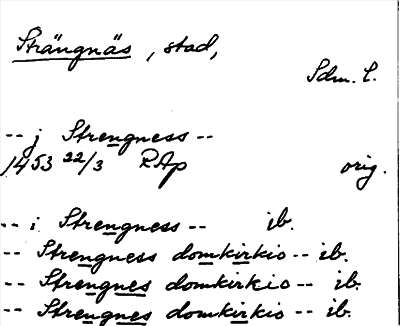 Strängnäs, stad,
Sdm. l.
-- j Strengness --
1453 22/3 RAp orig.
-- i Strengness -- ib.
-- Strengness domkirkio -- ib.
-- Strengnes domkirkio -- ib.
-- Strengnes domkirkio -- ib.